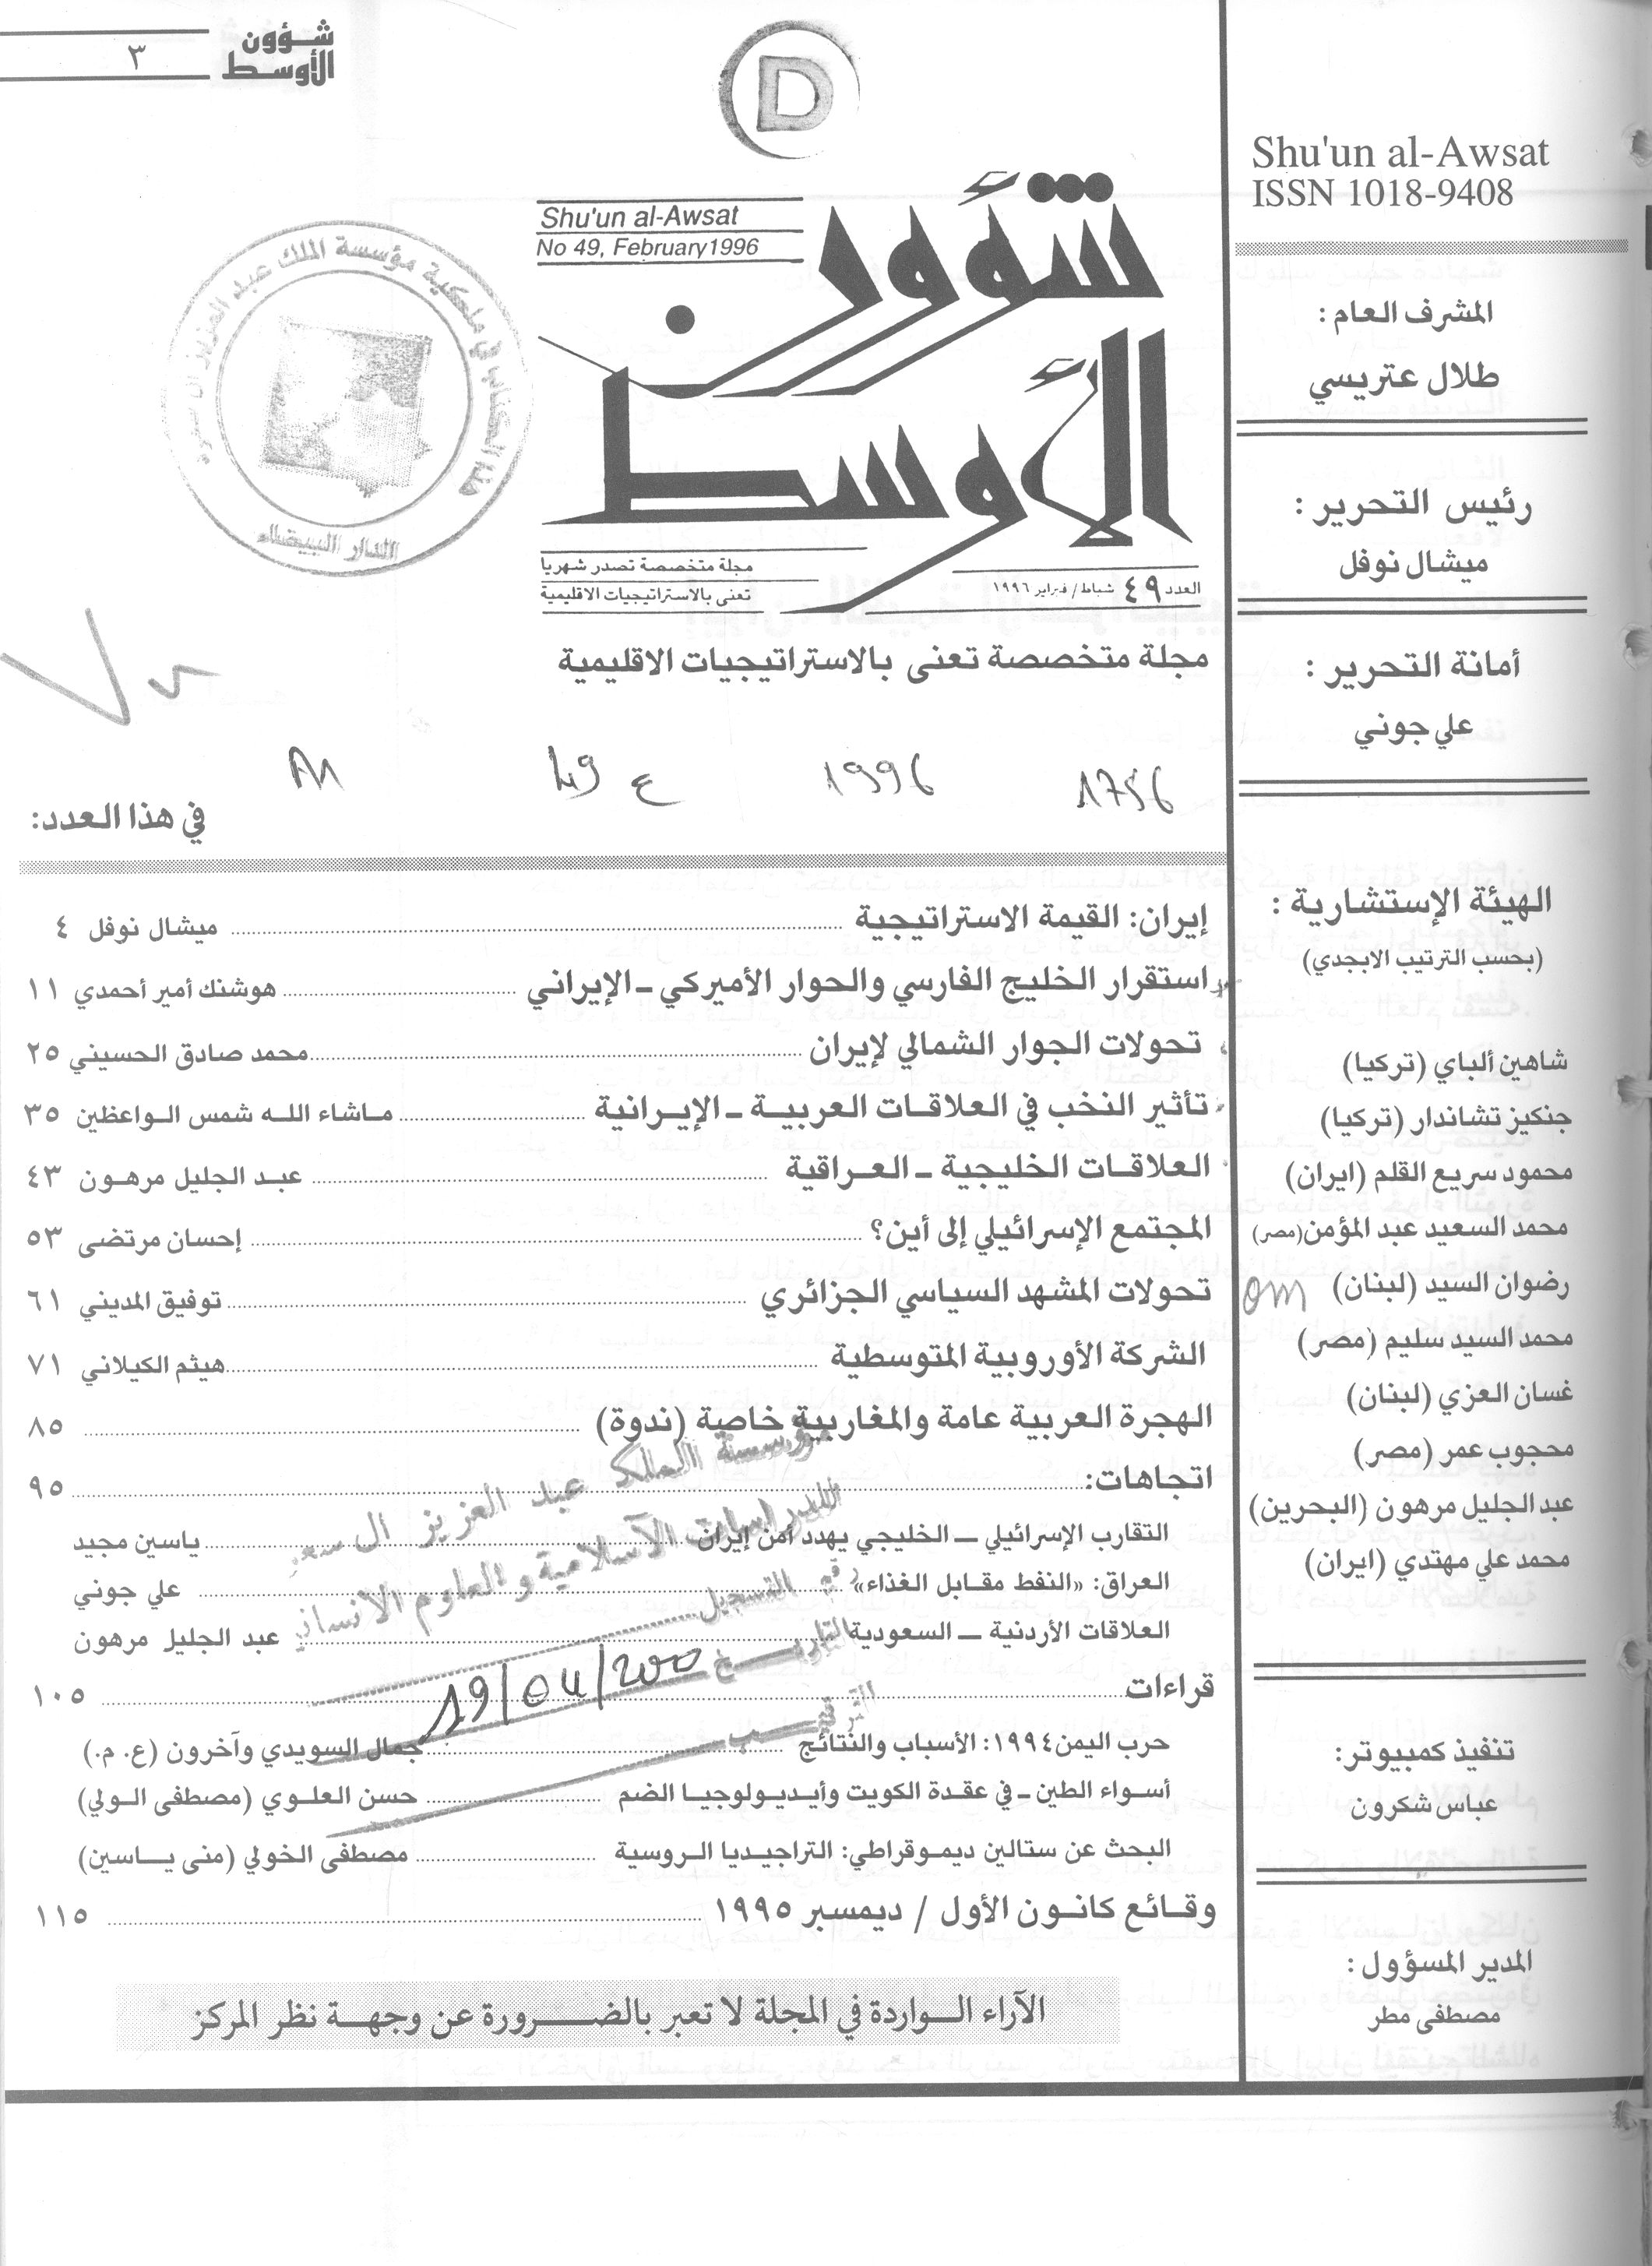 شؤون
الأوسط
٣
D
Shu'un al-Awsat
ISSN 1018-9408
المشرف العام :
طلال عتريسي
رئيس التحرير :
ميشال نوفل
أمانة التحرير :
علي جوني
الهيئة الإستشارية :
(بحسب الترتيب الابجدي)
شاهين ألباي (تركيا)
جنكيز تشاندار (تركيا)
محمود سريع القلم (ايران)
محمد السعيد عبد المؤمن (مصر)
رضوان السيد (لبنان)
محمد السيد سليم (مصر)
غسان العزي (لبنان)
محجوب عمر (مصر)
عبد الجليل مرهون (البحرين)
محمد علي مهتدي (ايران)
تنفيذ كمبيوتر:
عباس شكرون
المدير المسؤول :
مصطفى مطر
Shu'un al-Awsat
No 49, February 1996
شؤون
الأوسط
مجلة متخصصة تصدر شهريا
تعنى بالاستراتيجيات الاقليمية
العدد ٤٩ شباط/ فبراير ١٩٩٦
هذا الكتاب في ملكية مؤسسة الملك عبد العزيز ال سعود
الدار البيضاء
مجلة متخصصة تعنى بالاستراتيجيات الاقليمية
1756 1996 ع 49
في هذا العدد:
إيران: القيمة الاستراتيجية ميشال نوفل ٤
استقرار الخليج الفارسي والحوار الأميركي - الإيراني هوشنك أمير أحمدي ١١
تحولات الجوار الشمالي لإيران محمد صادق الحسيني ٢٥
تأثير النخب في العلاقات العربية - الإيرانية ماشاء الله شمس الواعظين ٣٥
العلاقات الخليجية - العراقية عبد الجليل مرهون ٤٣
المجتمع الإسرائيلي إلى أين؟ إحسان مرتضى ٥٣
تحولات المشهد السياسي الجزائري توفيق المديني ٦١
الشركة الأوروبية المتوسطية هيثم الكيلاني ٧١
الهجرة العربية عامة والمغاربية خاصة (ندوة) ٨٥
اتجاهات: ٩٥
التقارب الإسرائيلي - الخليجي يهدد أمن إيران ياسين مجيد
العراق: «النفط مقابل الغذاء» علي جوني
العلاقات الأردنية - السعودية عبد الجليل مرهون
قراءات ١٠٥
حرب اليمن ١٩٩٤: الأسباب والنتائج جمال السويدي وآخرون (ع. م.)
أسواء الطين - في عقدة الكويت وأيديولوجيا الضم حسن العلوي (مصطفى الولي)
البحث عن ستالين ديموقراطي: التراجيديا الروسية مصطفى الخولي (منى ياسين)
وقائع كانون الأول / ديسمبر ١٩٩٥ ١١٥
مؤسسة الملك عبد العزيز ال سعود
للدراسات الاسلامية والعلوم الانسانية
رقم التسجيل
التاريخ 19/04/200
الترقيب
الآراء الواردة في المجلة لا تعبر بالضرورة عن وجهة نظر المركز